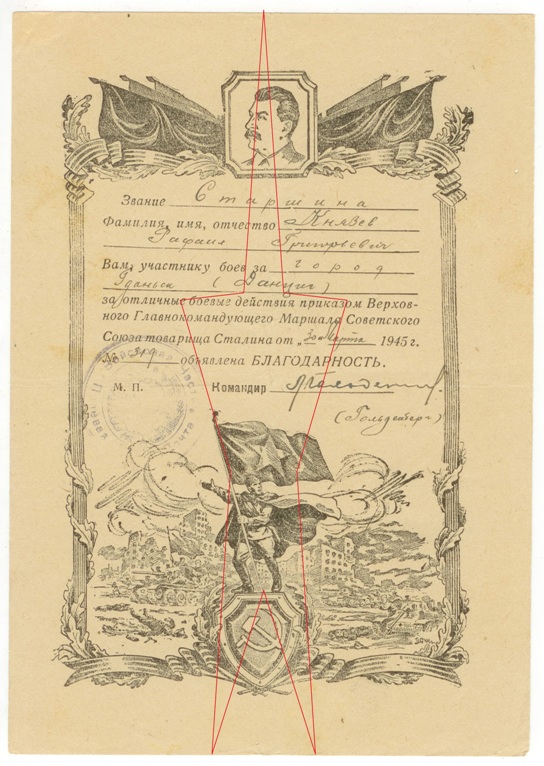 Звание Старшина
Фамилия, имя, отчество Князев
Рафаил Григорьевич
Вам, участнику боев за город
Гданьск (Данциг)
за отличные боевые действия приказом Верхов-
ного Главнокомандующего Маршала Советского
Союза товарища Сталина от „30" марта 1945 г.
№ 319 объявлена БЛАГОДАРНОСТЬ.
М. П. Командир